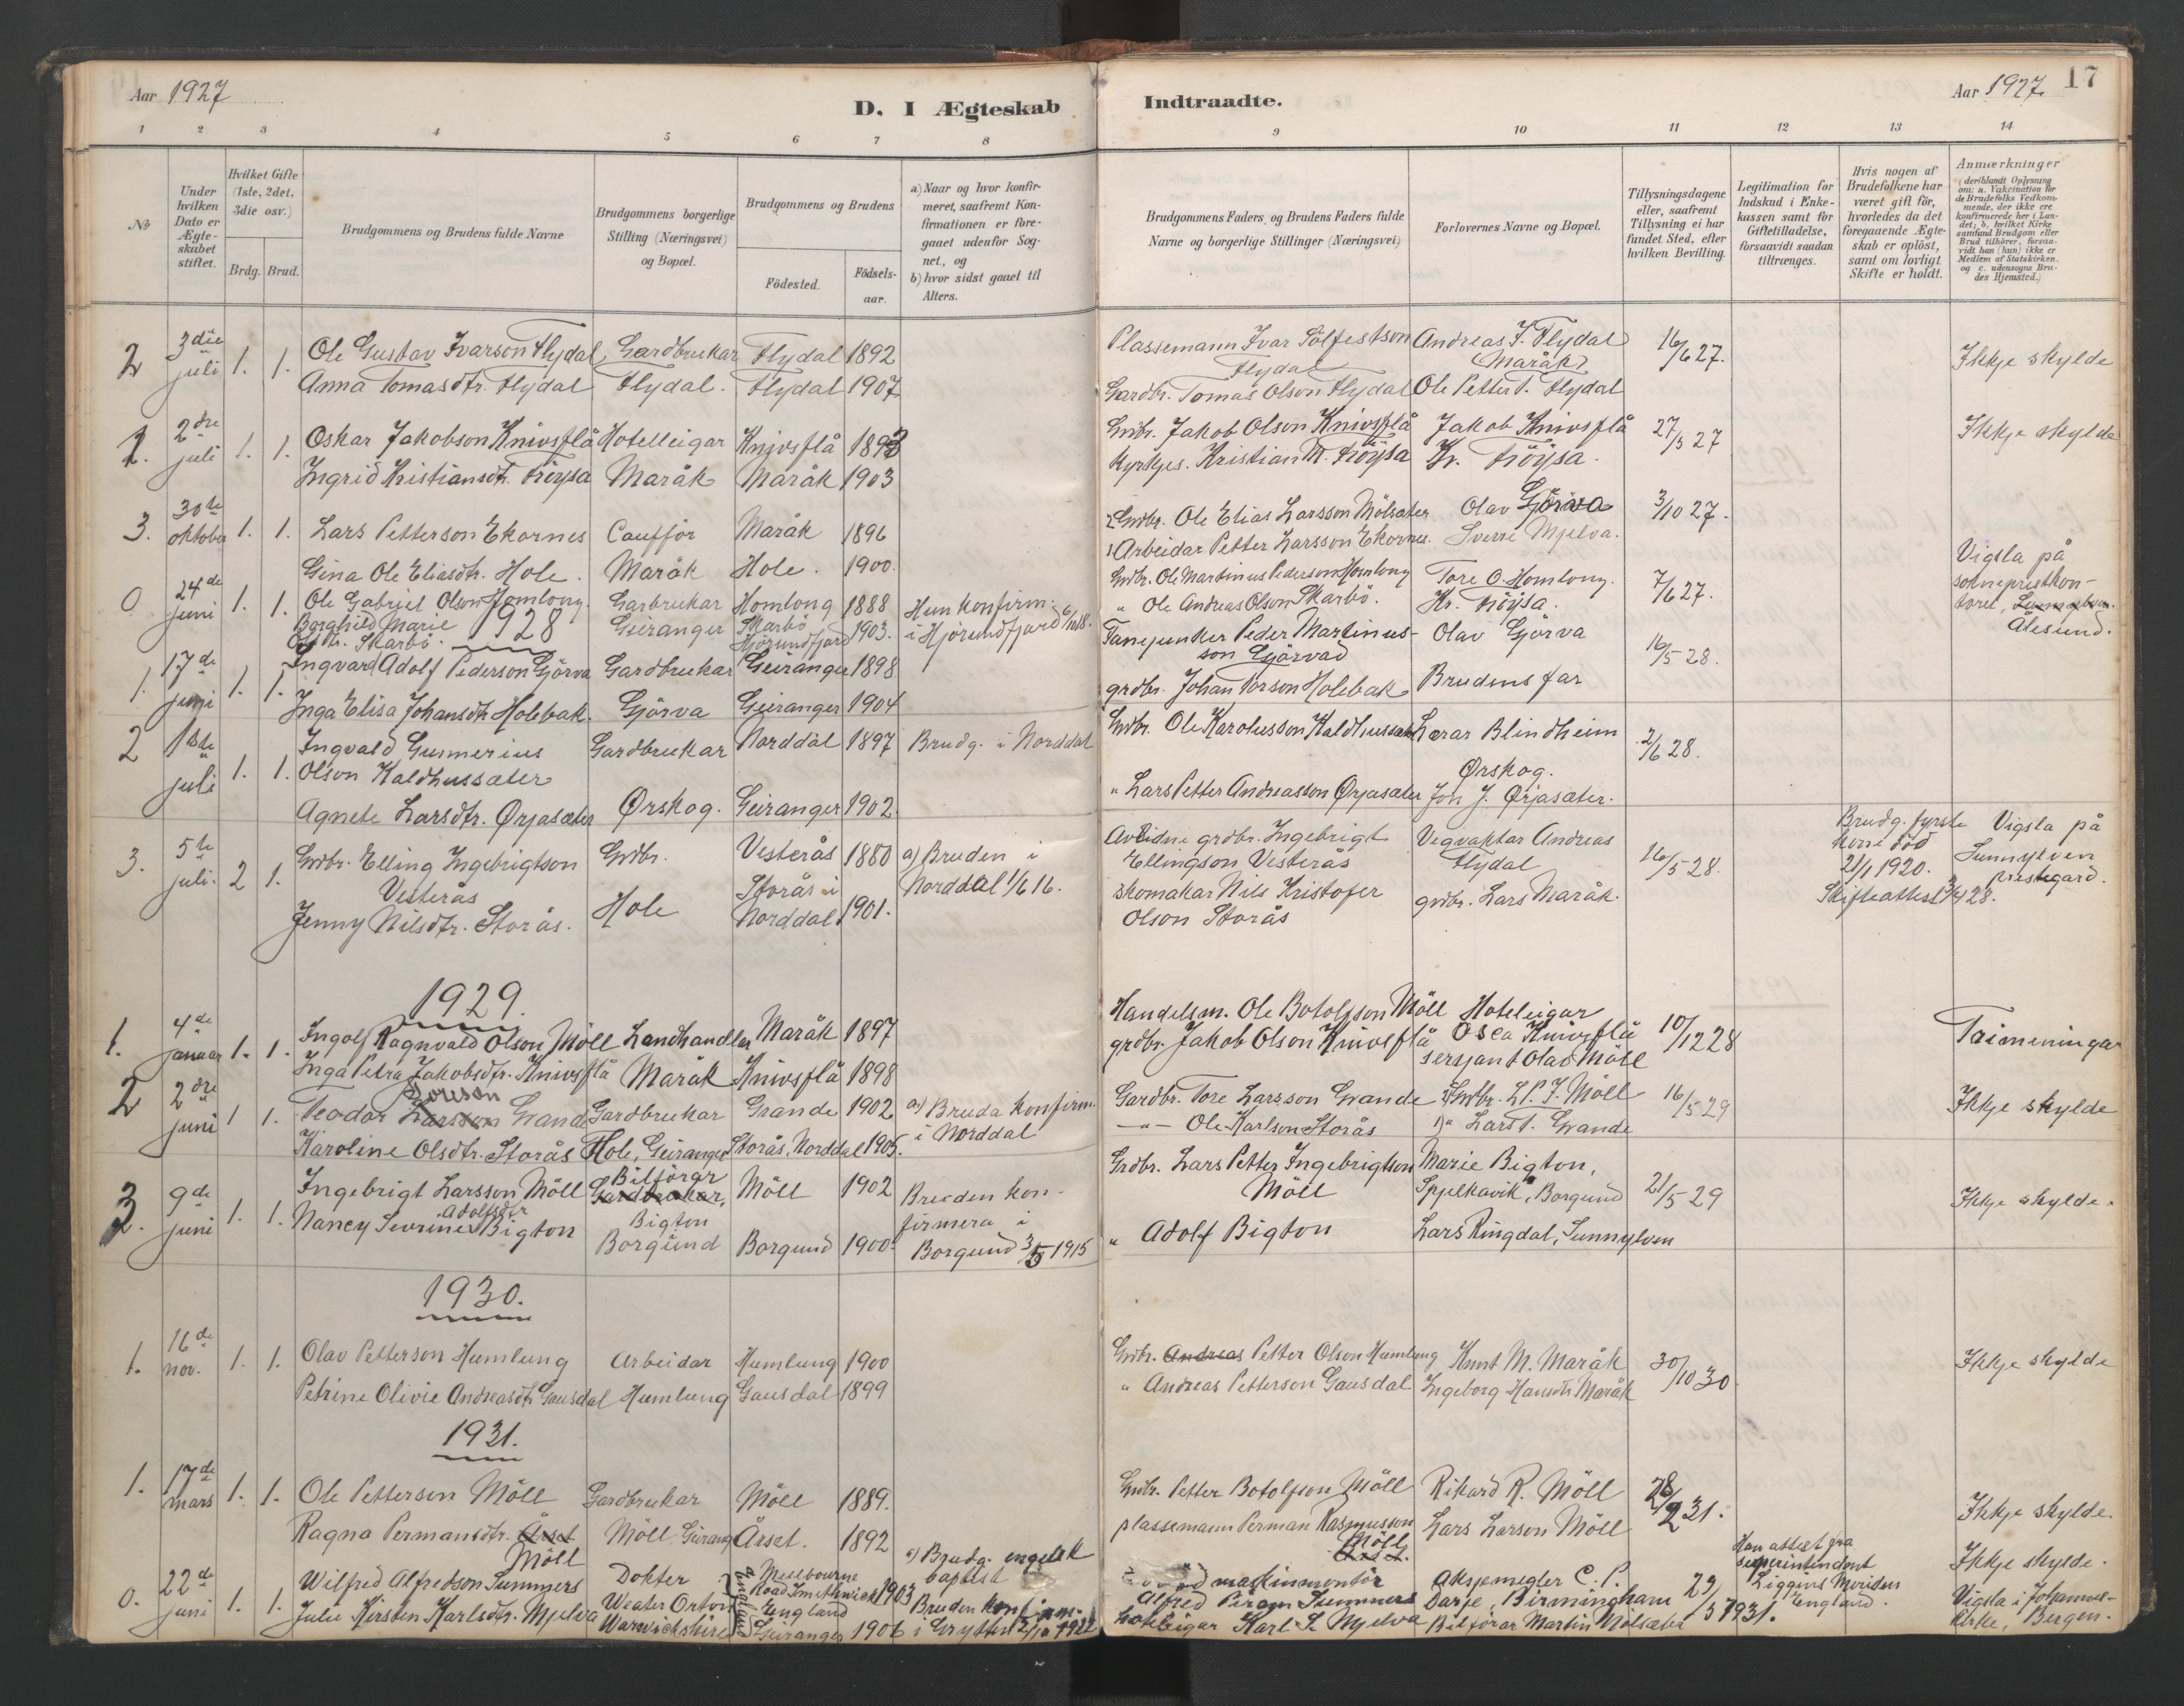 Aar 1927
D. I Ægteskab
1 2 3 4 5 6 7 8
No
Under hvilken Dato er Ægteskabet stiftet.
Hvilket Gifte (1ste, 2det, 3die osv.)
Brdg. Brud.
Brudgommens og Brudens fulde Navne
Brudgommens borgerlige Stilling (Næringsvei) og Bopæl.
Brudgommens og Brudens
Födested.
Födsels-aar.
a) Naar og hvor konfirmeret, saafremt Konfirmationen er foregaaet udenfor Sognet, og
b) hvor sidst gaaet til Alters.
2 3die juli 1. 1. Ole Gustav Ivarson Flydal, Gardbrukar Flydal 1892
Anna Tomasdtr. Flydal Flydal. Flydal 1907
1. 2dre juli 1. 1. Oskar Jakobson Knivsflå Hotelleigar Knivsflå 1893
Ingrid Kristiansdtr. Fröysa Maråk Maråk 1903
3. 30te oktober 1. 1. Lars Petterson Ekornes Caufför Maråk 1896
Gina Ole Eliasdtr. Hole. Maråk Hole. 1900.
0 24de juni 1. 1. Ole Gabriel Olson Homlong. Garbrukar Homlong 1888 Hun konfirm.
Borghild Marie Olsdtr. Skarbö. Geiranger Skarbö Hjörundfjord 1903. i Hjörundfjord 6/10 18.
1928
1. 17de juni 1. 1. Ingvard Adolf Pederson Gjörva Gardbrukar Geiranger 1898
Inga Elisa Johansdtr Holebak. Gjörva Geiranger 1904
2 1ste juli 1. 1. Ingvald Gunnerius Gardbrukar Norddal 1897 Brudg. i Norddal
Olson Kaldhussæter
Agnete Larsdtr. Ørjasæter Ørskog. Geiranger 1902.
3. 5te juli. 2 1. Grdbr. Elling Ingebrigtson Grdbr. Vesterås 1880 a) Bruden i
Vesterås Storås i Norddal 1/6 16.
Jenny Nilsdtr. Storås. Hole Norddal 1901.
1929.
1. 4de januar 1. 1. Ingolf Ragnvald Olson Möll Landhandlar Maråk 1897
Inga Petra Jakobsdtr. Knivsflå Maråk Knivsflå 1898
2 2dre juni 1 1. Teodor Larsson Toreson Grande Gardbrukar Grande 1902 a) Bruda konfirm.
Karoline Olsdtr. Storås Hole, Geiranger Storås, Norddal 1905. i Norddal
3. 9de juni 1. 1. Ingebrigt Larsson Möll Gardbrukar, Bilförar Möll 1902 Bruden kon-
Nancy Sevrine Adolfsdtr Bigton Bigton firmera i
Borgund Borgund 1900. Borgund 3/5 1915
1930.
1. 16de nov. 1. 1. Olav Petterson Humlung Arbeidar Humlung 1900
Petrine Olivie Andreasdtr Gausdal Humlung Gausdal 1899
1931.
1. 17de mars 1. 1. Ole Petterson Möll Gardbrukar Möll 1889.
Ragna Permansdtr. Årset Möll Möll, Geirang Årset. 1892
0. 22de juni 1. 1. Wilfred Alfredson Summers Dokter Melbourne Road Smethwick England 1903 a) Brudg. engelsk baptist
Julie Kirstin Karlsdtr. Mjelva Water Orton Warwickshire England Geiranger 1906 Bruden konfirm. i Grytten 2/10 1922
Indtraadte.
Aar 1927. 17
9 10 11 12 13 14
Brudgommens Faders og Brudens Faders fulde Navne og borgerlige Stillinger (Næringsvei)
Forlovernes Navne og Bopæl.
Tillysningsdagene eller, saafremt Tillysning ei har fundet Sted, efter hvilken Bevilling.
Legitimation for Indskud i Enkekassen samt for Giftetilladelse, forsaavidt saadan tiltrænges.
Hvis nogen af Brudefolkene har været gift för, hvorledes da det foregaaende Ægteskab er oplöst, samt om lovligt Skifte er holdt.
Anmærkninger (deriblandt Oplysning om: a. Vakcination for de Brudefolks Vedkommende, der ikke ere konfirmerede her i Landet; b. hvilket Kirkesamfund Brudgom eller Brud tilhörer, forsaavidt han (hun) ikke er Medlem af Statskirken. og c. udensogns Brudes Hjemsted.)
Plassemann Ivar Sölfestson Andreas I. Flydal 16/6 27. Ikkje skylde
Flydal Maråk
Gardbr. Tomas Olson Flydal Ole Petter T. Flydal
Grdbr. Jakob Olson Knivsflå Jakob Knivsflå 27/5 27 Ikkje skylde
Kyrkjes. Kristian M. Fröysa Kr. Fröysa.
2 Grdbr. Ole Elias Larsson Mölsæter Olav Gjörva 3/10 27.
1 Arbeidar Petter Larsson Ekornes. Sverre Mjelva.
Grdbr. Ole Martinus Pederson Homlong Tore O. Homlong. 7/6 27. Vigsla på sokneprestkontoret, Ålesund.
" Ole Andreas Olson Skarbö. Kr. Fröysa.
Fanejunker Peder Martinus- Olav Gjörva 16/5 28.
son Gjörvad
grdbr. Johan Torson Holebak Brudens far
Grdbr. Ole Karolusson Kaldhussæter Lærar Blindheim 2/6 28.
Ørskog.
" Lars Petter Andreasson Ørjasæter Jon J. Ørjasæter.
Avlidne grdbr. Ingebrigt Vegvaktar Andreas 16/5 28. Brudg. fyrste kone död 21/1 1920. Vigsla på Sunnylven prestegard.
Ellingson Vesterås Flydal
skomakar Nils Kristofer grdbr. Lars Maråk. Skifteattest 3/4 28.
Olson Storås
Handelsm. Ole Botolfson Möll Hoteleigar 10/12 28 Trimeninga
grdbr. Jakob Olson Knivsflå Osca Knivsflå
sersjant Olav Möll
Gardbr. Tore Larsson Grande 2) Grdbr. L. P. I. Möll 16/5 29 Ikkje skylde
-"- Ole Karlson Storås 1) " Lars T. Grande
Grdbr. Lars Petter Ingebrigtson Marie Bigton, 21/5 29 Ikkje skylde.
Möll Spjelkavik, Borgund
" Adolf Bigton Lars Ringdal, Sunnylven
Grdbr. Andreas Petter Olson Humlung Knut M. Maråk 30/10 30 Ikkje skylde
" Andreas Petterson Gausdal Ingeborg Hansdtr Maråk
Grdbr. Petter Botolfson Möll Rikard R. Möll 28/2 31. Ikkje skylde.
plassemann Perman Rasmusson Möll Lars Larson Möll
maskinmontör Aksjemegler C. P. 29/5 1931. Han attest fra superintendent Liggins Meriden England. Ikkje skylde.
Alfred Summers Darje, Birmingham Vigsla i Johannes-
hoteleigar Karl S Mjelva Bilförar Martin Mölsæter kirke, Bergen.